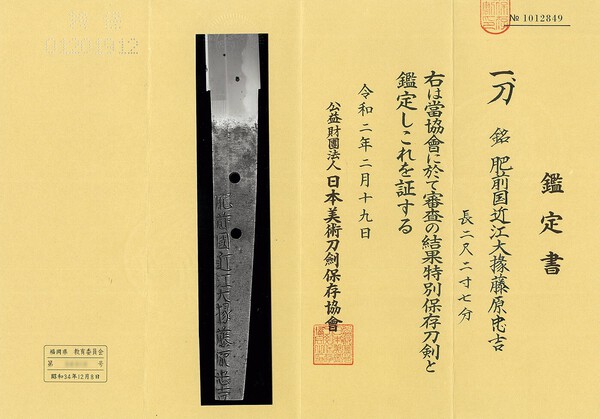 № 1012849
鑑定書
一、刀 銘 肥前国近江大掾藤原忠吉
長二尺二寸七分
右は當協會に於て審査の結果特別保存刀剣と
鑑定しこれを証する
令和二年二月十九日
公益財團法人 日本美術刀剣保存協會
肥前國近江大掾藤原忠吉
福岡県 教育委員会
第 号
昭和34年12月8日